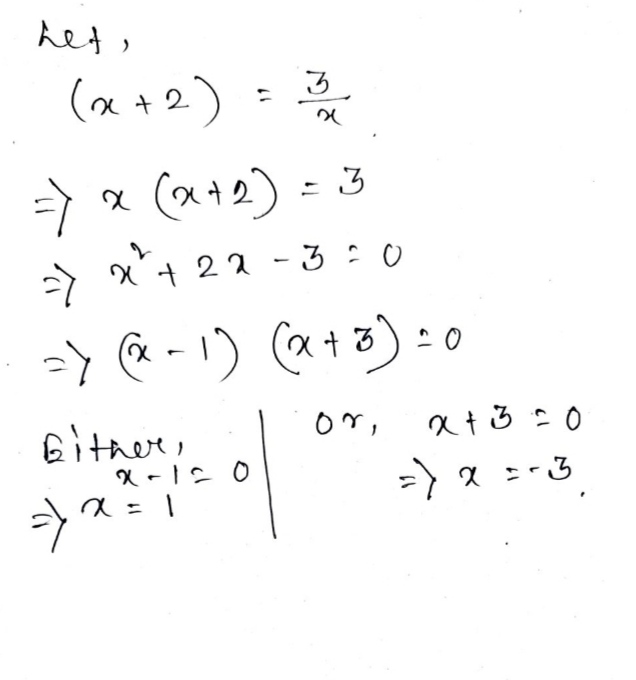 Let,
(x + 2) = 3/x
=> x (x+2) = 3
=> x² + 2x - 3 = 0
=> (x - 1) (x + 3) = 0
Either,
x - 1 = 0
=> x = 1
or, x + 3 = 0
=> x = -3.